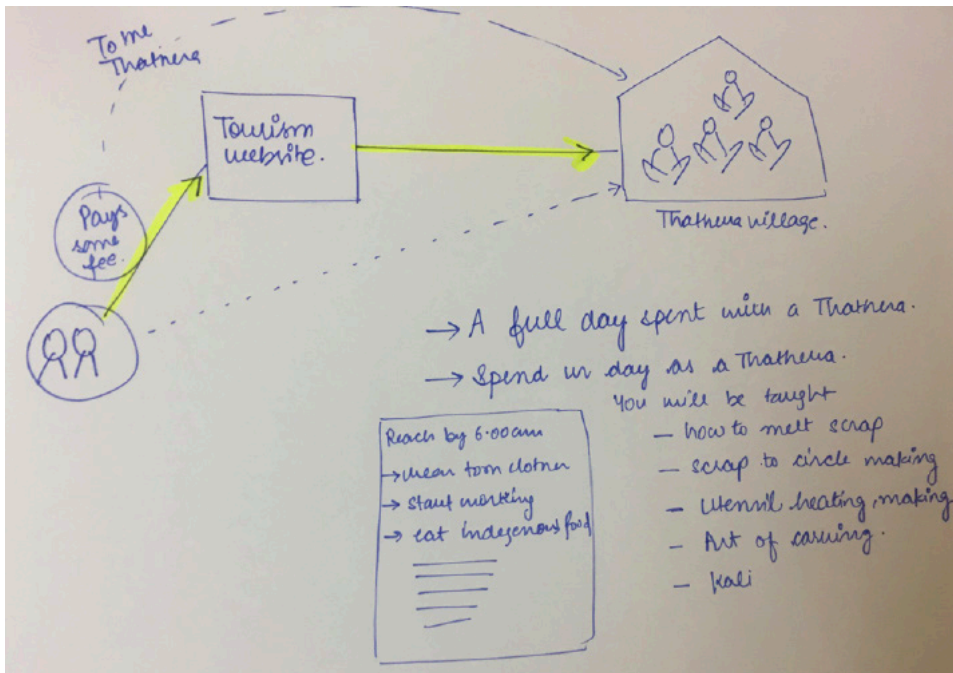 To the
Thathera
Tourism
website.
Pays
some
fee.
Thathera village.
→ A full day spent with a Thathera.
→ Spend ur day as a Thathera.
You will be taught
- how to melt scrap
- scrap to circle making
- Utensil heating, making
- Art of carving.
- Kali
Reach by 6.00am
→ wear torn clothes
→ start working
→ eat indegenous food